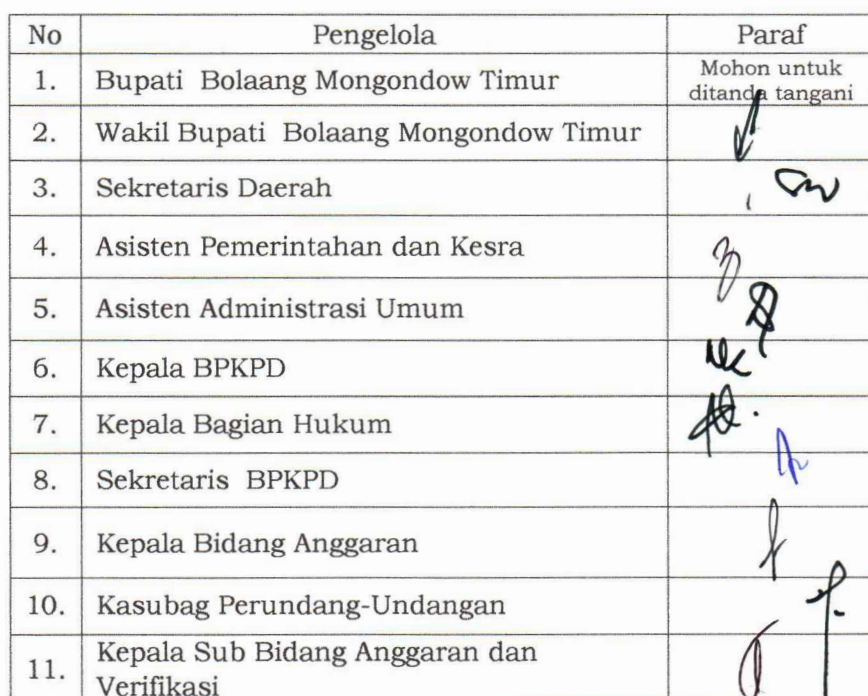 No Pengelola Paraf
1. Bupati Bolaang Mongondow Timur Mohon untuk
ditanda tangani
2. Wakil Bupati Bolaang Mongondow Timur
3. Sekretaris Daerah
4. Asisten Pemerintahan dan Kesra
5. Asisten Administrasi Umum
6. Kepala BPKPD
7. Kepala Bagian Hukum
8. Sekretaris BPKPD
9. Kepala Bidang Anggaran
10. Kasubag Perundang-Undangan
11. Kepala Sub Bidang Anggaran dan
Verifikasi